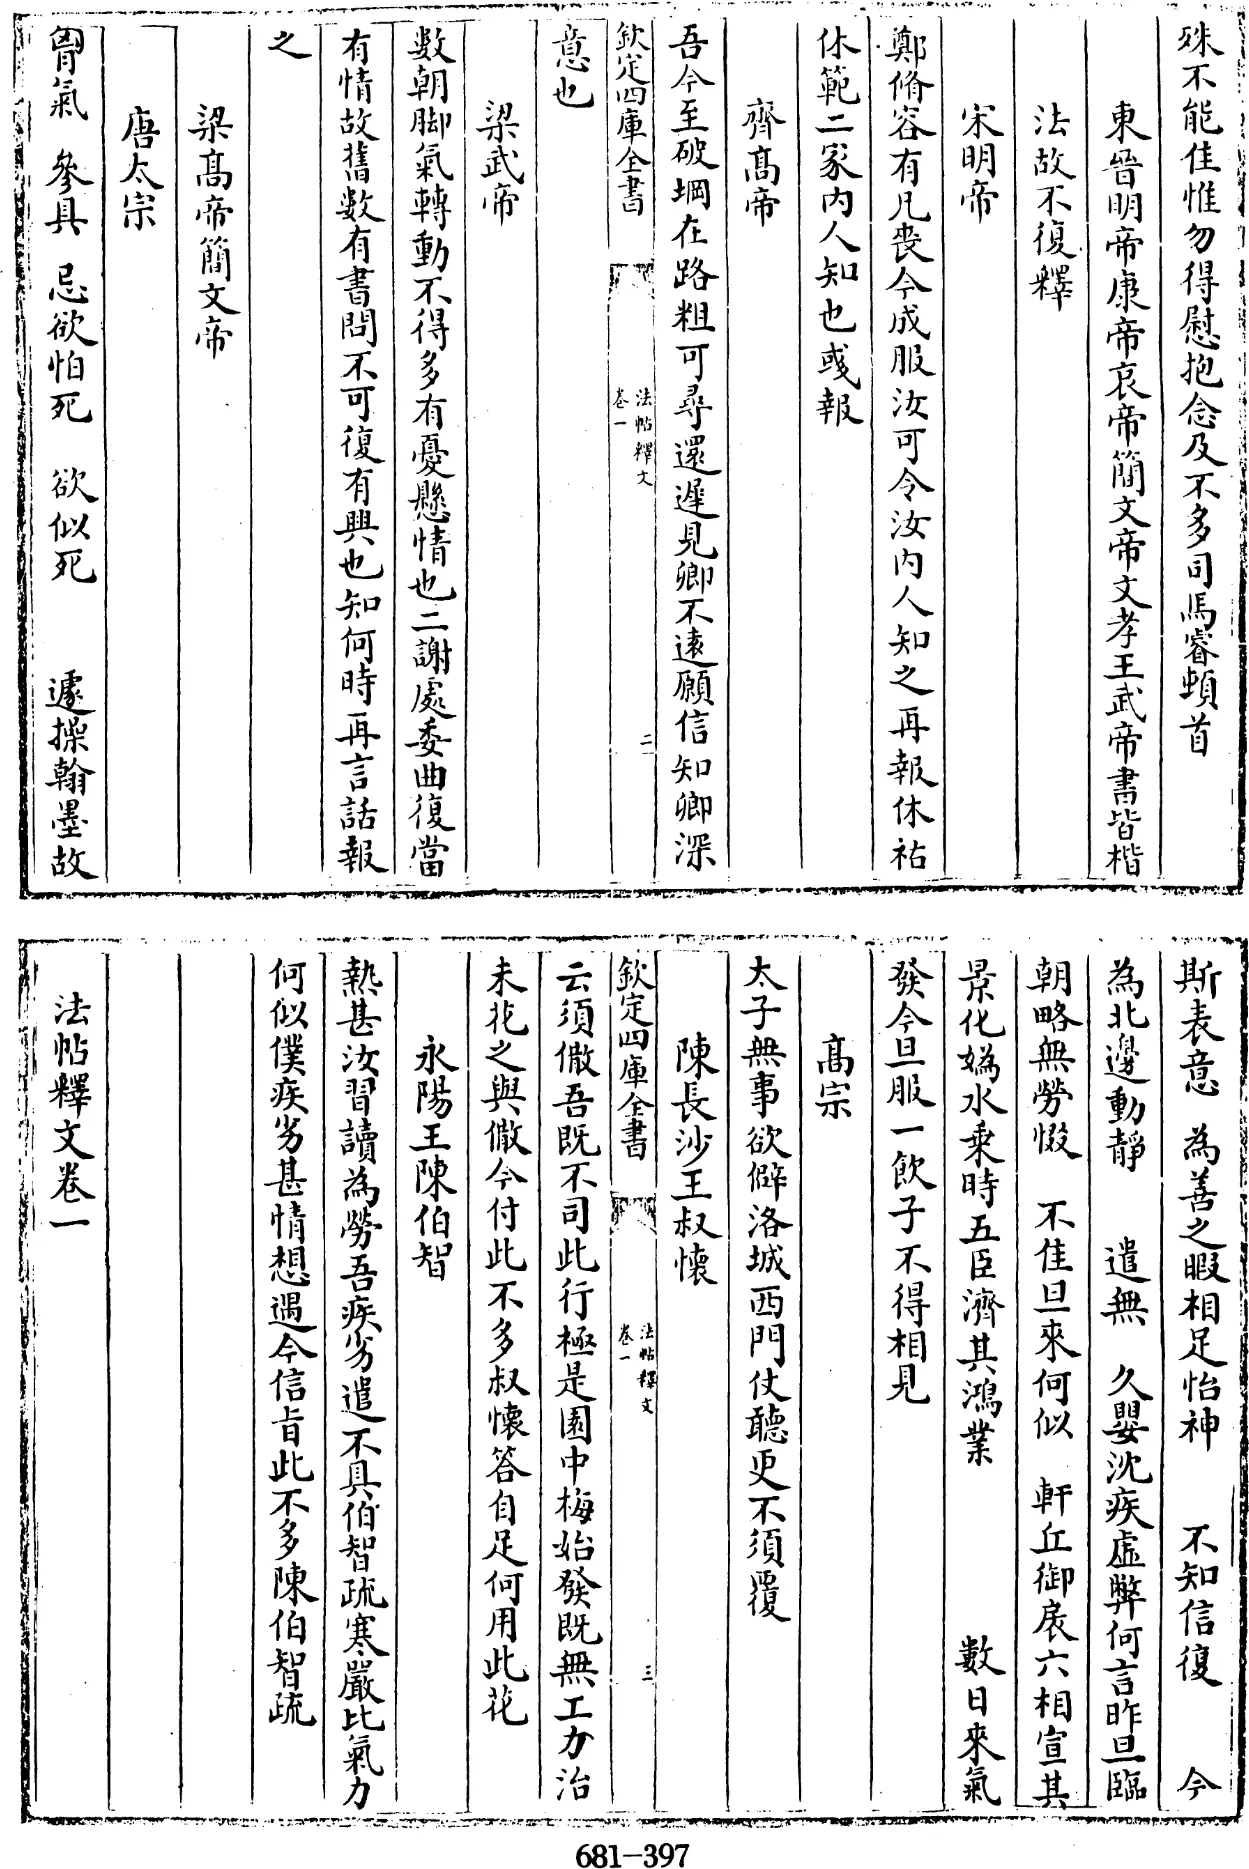 殊不能佳惟勿得慰抱念及不多司馬睿頓首
東晉明帝康帝哀帝簡文帝文孝王武帝書皆楷
法故不復釋
宋明帝
鄭脩容有凡喪今成服汝可令汝内人知之再報休祐
休範二家内人知也彧報
齊髙帝
吾今至破堈在路粗可尋還遲見卿不遠願信知卿深
欽定四庫全書
法帖釋文
卷一
二
意也
梁武帝
數朝脚氣轉動不得多有憂懸情也二謝處委曲復當
有情故舊數有書問不可復有興也知何時再言話報
之
梁髙帝簡文帝
唐太宗
胷氣 參具 忌欲怕死 欲似死 遽操翰墨故
斯表意 為善之暇相足怡神 不知信復 今
為北邊動靜 遣無 久嬰沈疾虛弊何言昨旦臨
朝略無勞惙 不佳旦來何似 軒丘御扆六相宣其
景化嬀水乘時五臣濟其鴻業 數日來氣
發今旦服一飲子不得相見
髙宗
太子無事欲僻洛城西門仗聽更不須覆
陳長沙王叔懷
欽定四庫全書
法帖釋文
卷一
三
云須儆吾既不司此行極是園中梅始發既無工力治
未花之與儆今付此不多叔懷答自足何用此花
永陽王陳伯智
熱甚汝習讀為勞吾疾劣遣不具伯智疏寒嚴比氣力
何似僕疾劣甚情想遇今信旨此不多陳伯智疏
法帖釋文卷一
681-397